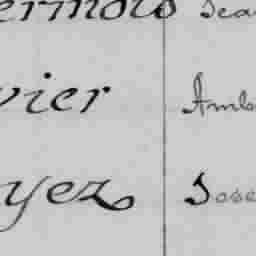 ermois Jea
vier Amb
yez Jose